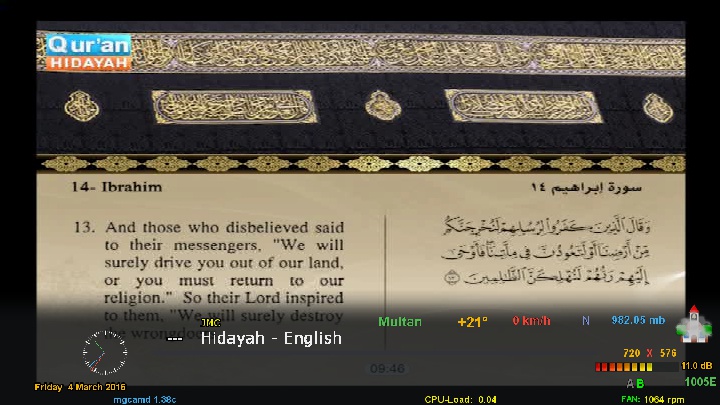 Qur'an
HIDAYAH
14- Ibrahim
سورة إبراهيم ١٤
13. And those who disbelieved said
to their messengers, "We will
surely drive you out of our land,
or you must return to our
religion." So their Lord inspired
to them, "We will surely destroy
the wrongdoers
وَقَالَ ٱلَّذِينَ كَفَرُوا۟ لِرُسُلِهِمْ لَنُخْرِجَنَّكُم
مِّنْ أَرْضِنَآ أَوْ لَتَعُودُنَّ فِى مِلَّتِنَا ۖ فَأَوْحَىٰٓ
إِلَيْهِمْ رَبُّهُمْ لَنُهْلِكَنَّ ٱلظَّٰلِمِينَ ١٣
JMC
--- Hidayah - English
Multan +21° 0 km/h N 982.05 mb
720 X 576
11.0 dB
A B 1005E
09:46
Friday 4 March 2016
mgcamd 1.38c CPU-Load: 0.04 FAN: 1064 rpm